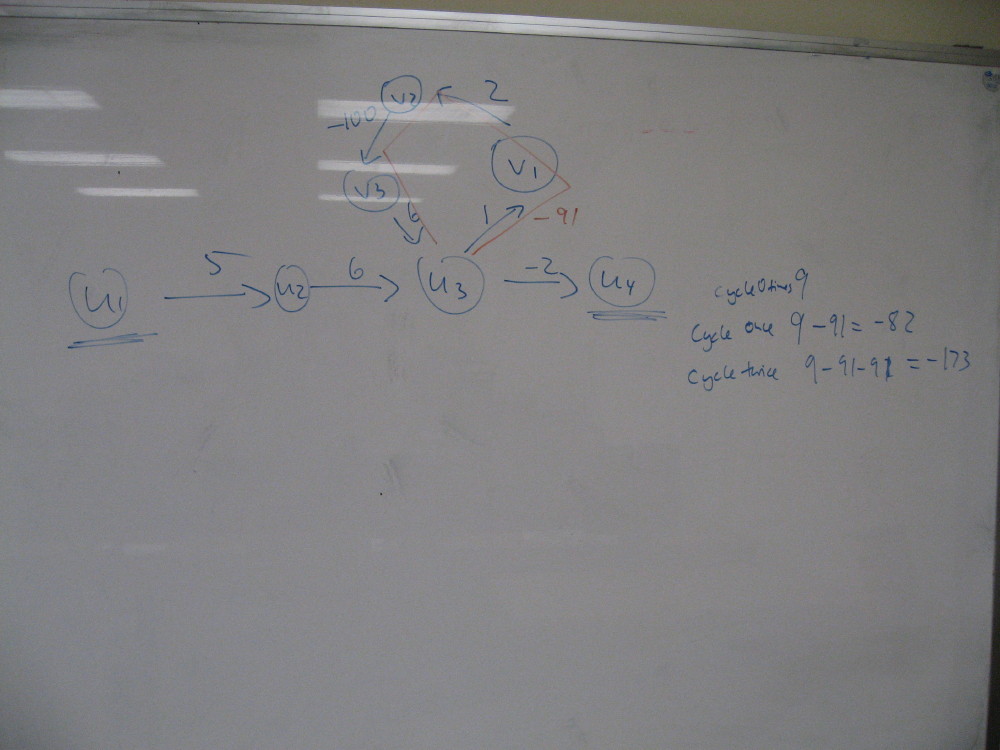 V2 2
-100
V1
V3
6 1 -91
5 6 -2
U1 U2 U3 U4
Cycle 0 times 9
Cycle once 9 - 91 = -82
Cycle twice 9 - 91 - 91 = -173